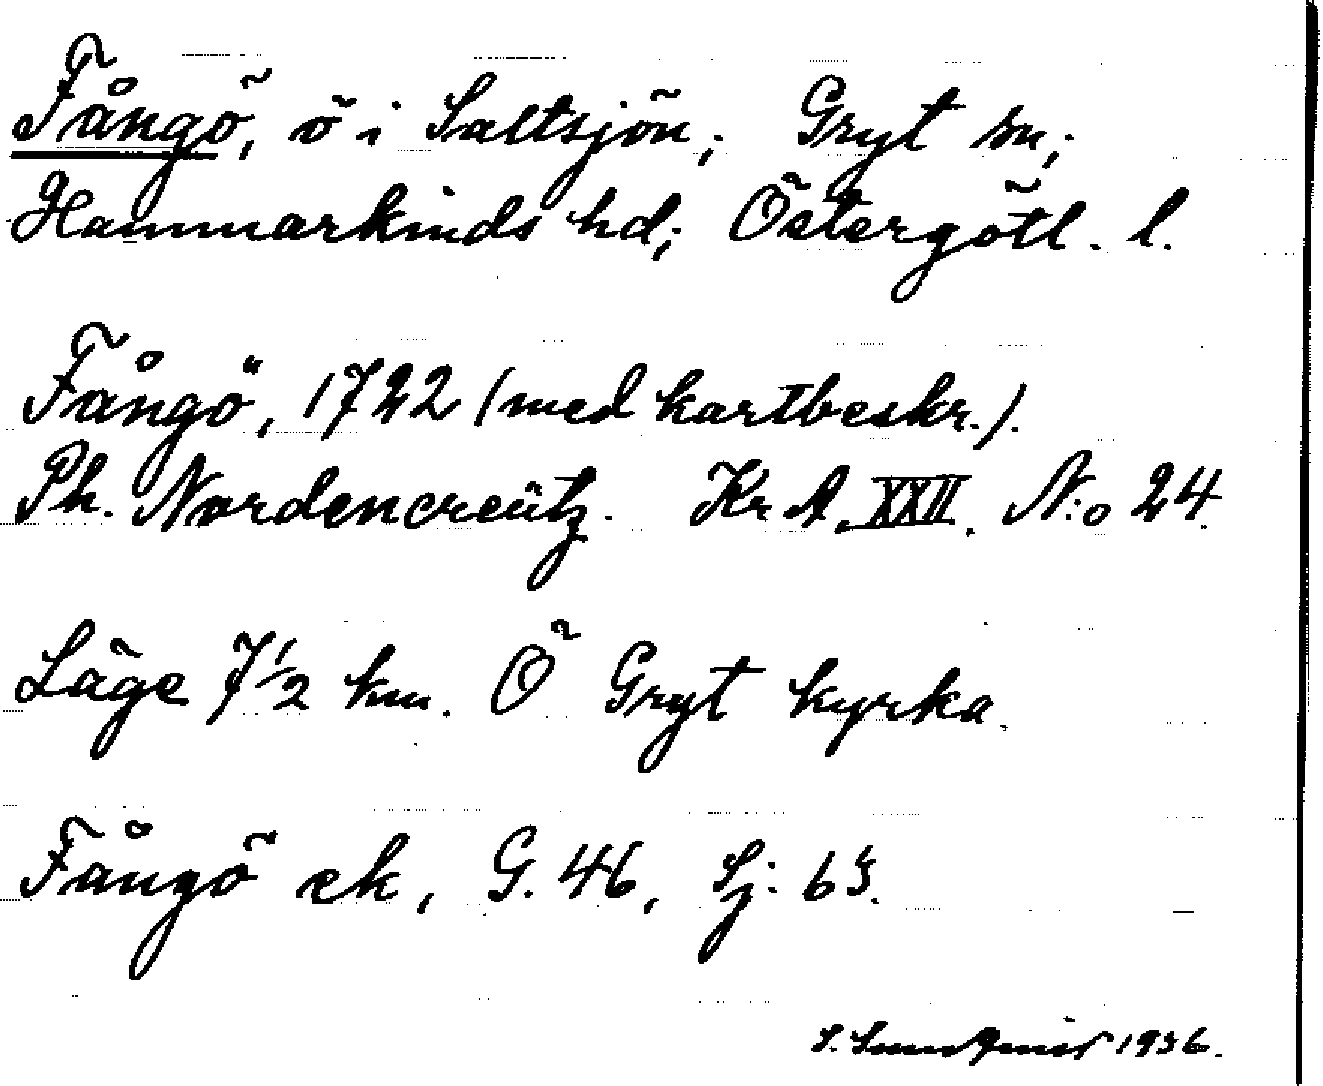 Fångö, ö i Saltsjön; Gryt sn;
Hammarkinds hd; Östergötl. l.
Fångö, 1722 (med kartbeskr.).
Ph. Nordencreütz. Kr A. XXII. N:o 24.
Läge 7 1/2 km. Ö Gryt kyrka.
Fångö ek, G. 46, Sj: 63.
S. 1936.